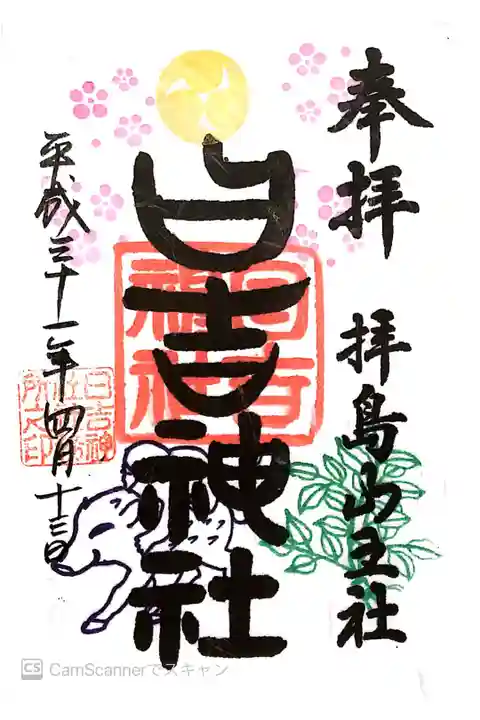 奉拝
拝島山王社
日吉神社
平成三十一年四月十三日
日吉
神社
日吉神
社社務
所之印
CS CamScannerでスキャン